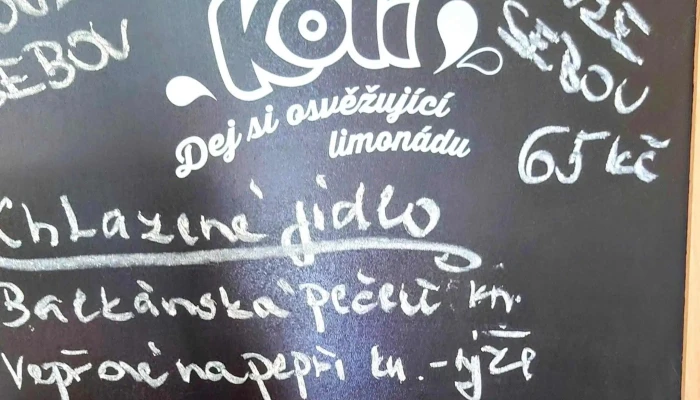 SEBOU
SEBOU
Dej si osvěžující
limonádu
65 kč
Chlazené jídlo
Balkánská pečeně kn.
Vepřové na pepři kn. - rýže